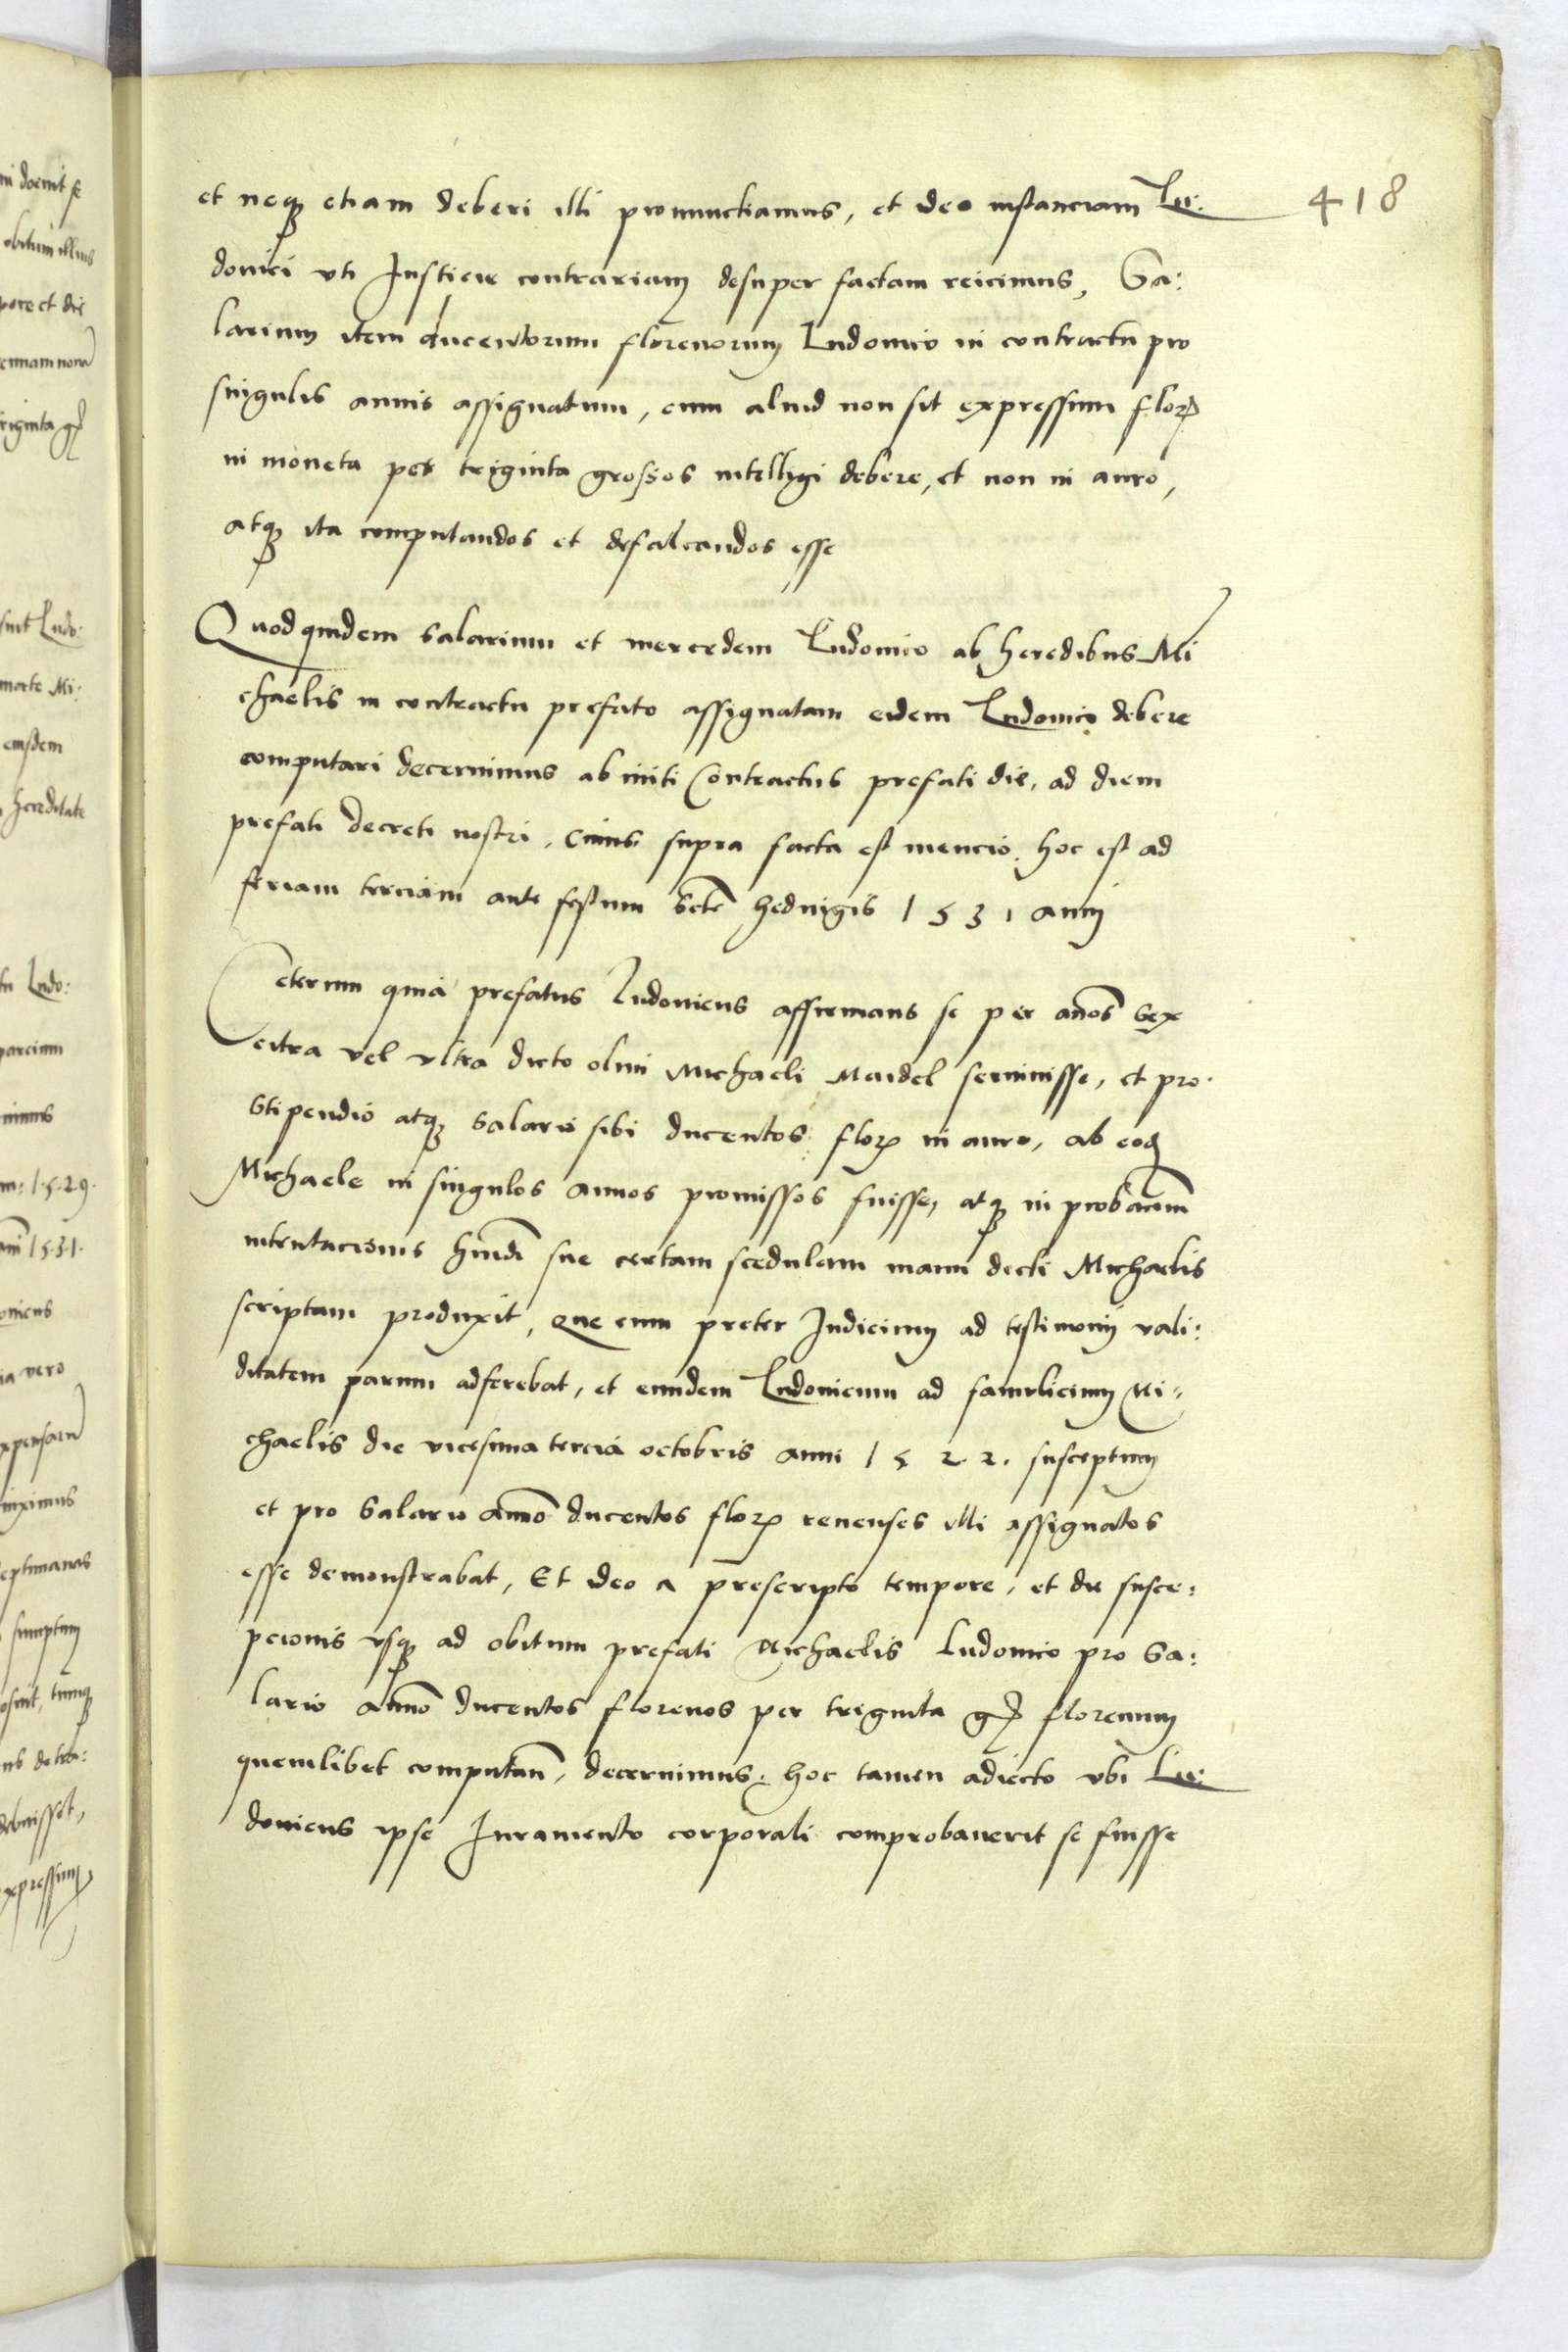 et neq3 etiam deberi illi pronunctiamus, et ideo instanciam Lu: 418
douici vti Justicie contrariam desuper factam reicimus, Sa:
larium item ducentorum florenorum Ludouico in contractu pro
singulis annis assignatum, cum aliud non sit expressum flor
in moneta per triginta grossos intelligi debere, et non in auro,
atq3 ita computandos et defalcandos esse
Quod quidem salarium et mercedem Ludouico ab heredibus Mi
chaelis in contractu prefato assignatam eidem Ludouico debere
computari decernimus ab initi Contractus prefati die, ad diem
prefati decreti nostri, cuius supra facta est mencio, hoc est ad
feriam terciam ante festum Scte Heduigis 1531 anni
Ceterum quia prefatus Ludouicus affirmans se per annos sex
citra vel vltra dicto olim Michaeli Meidel seruiuisse, et pro
Stipendio atq3 salario sibi ducentos flor in auro, ab eod
Michaele in singulos annos promissos fuisse, atq3 in probacionem
intentacionis hmdi sue certam scedulam manu dicti Michaelis
scriptam produxit, que cum preter Judicium ad testimonij vali:
ditatem parum adferebat, et eundem Ludouicum ad famulicium Mi:
chaelis die vicesima tercia octobris anni 1522. susceptum
et pro salario anno ducentos flor renenses illi assignatos
esse demonstrabat, Et ideo a prescripto tempore, et die susce:
pcionis vsq3 ad obitum prefati Michaelis Ludouico pro Sa:
lario anno ducentos florenos per triginta gr florenum
quemlibet computan, decernimus, hoc tamen adiecto vbi Lu:
douicus ipse Juramento corporali comprobauerit se fuisse